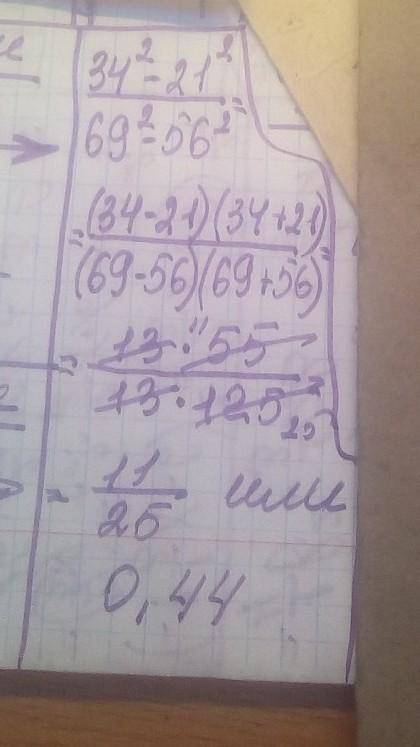 34² - 21²
69² - 56² =
= (34-21)(34+21)
(69-56)(69+56) =
= 13 · 55 11
13 · 125 25 =
= 11
25 или
0,44